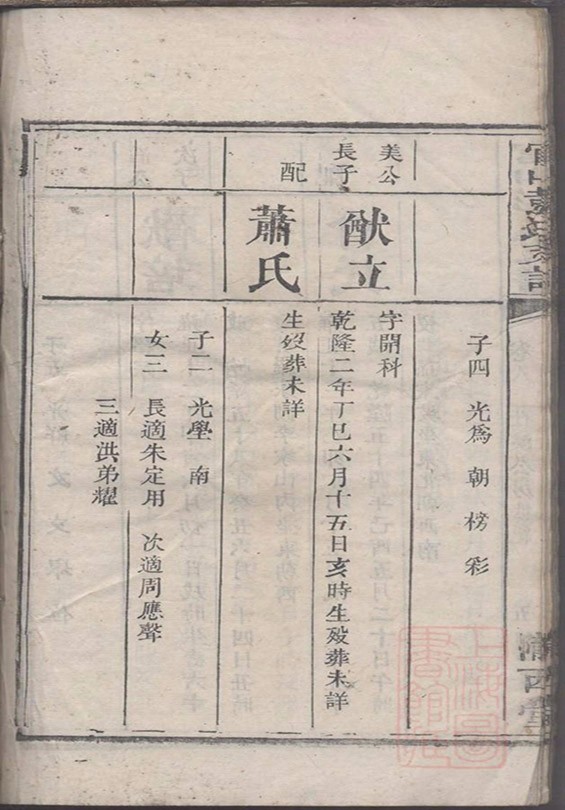 子四 光爲 朝 榜 彩
美公
長子
猷立
字開科
乾隆二年丁巳六月十五日亥時生歿葬未詳
配
蕭氏
生歿葬未詳
子二 光壆 南
女三 長適朱定用 次適周應聲
三適洪弟耀